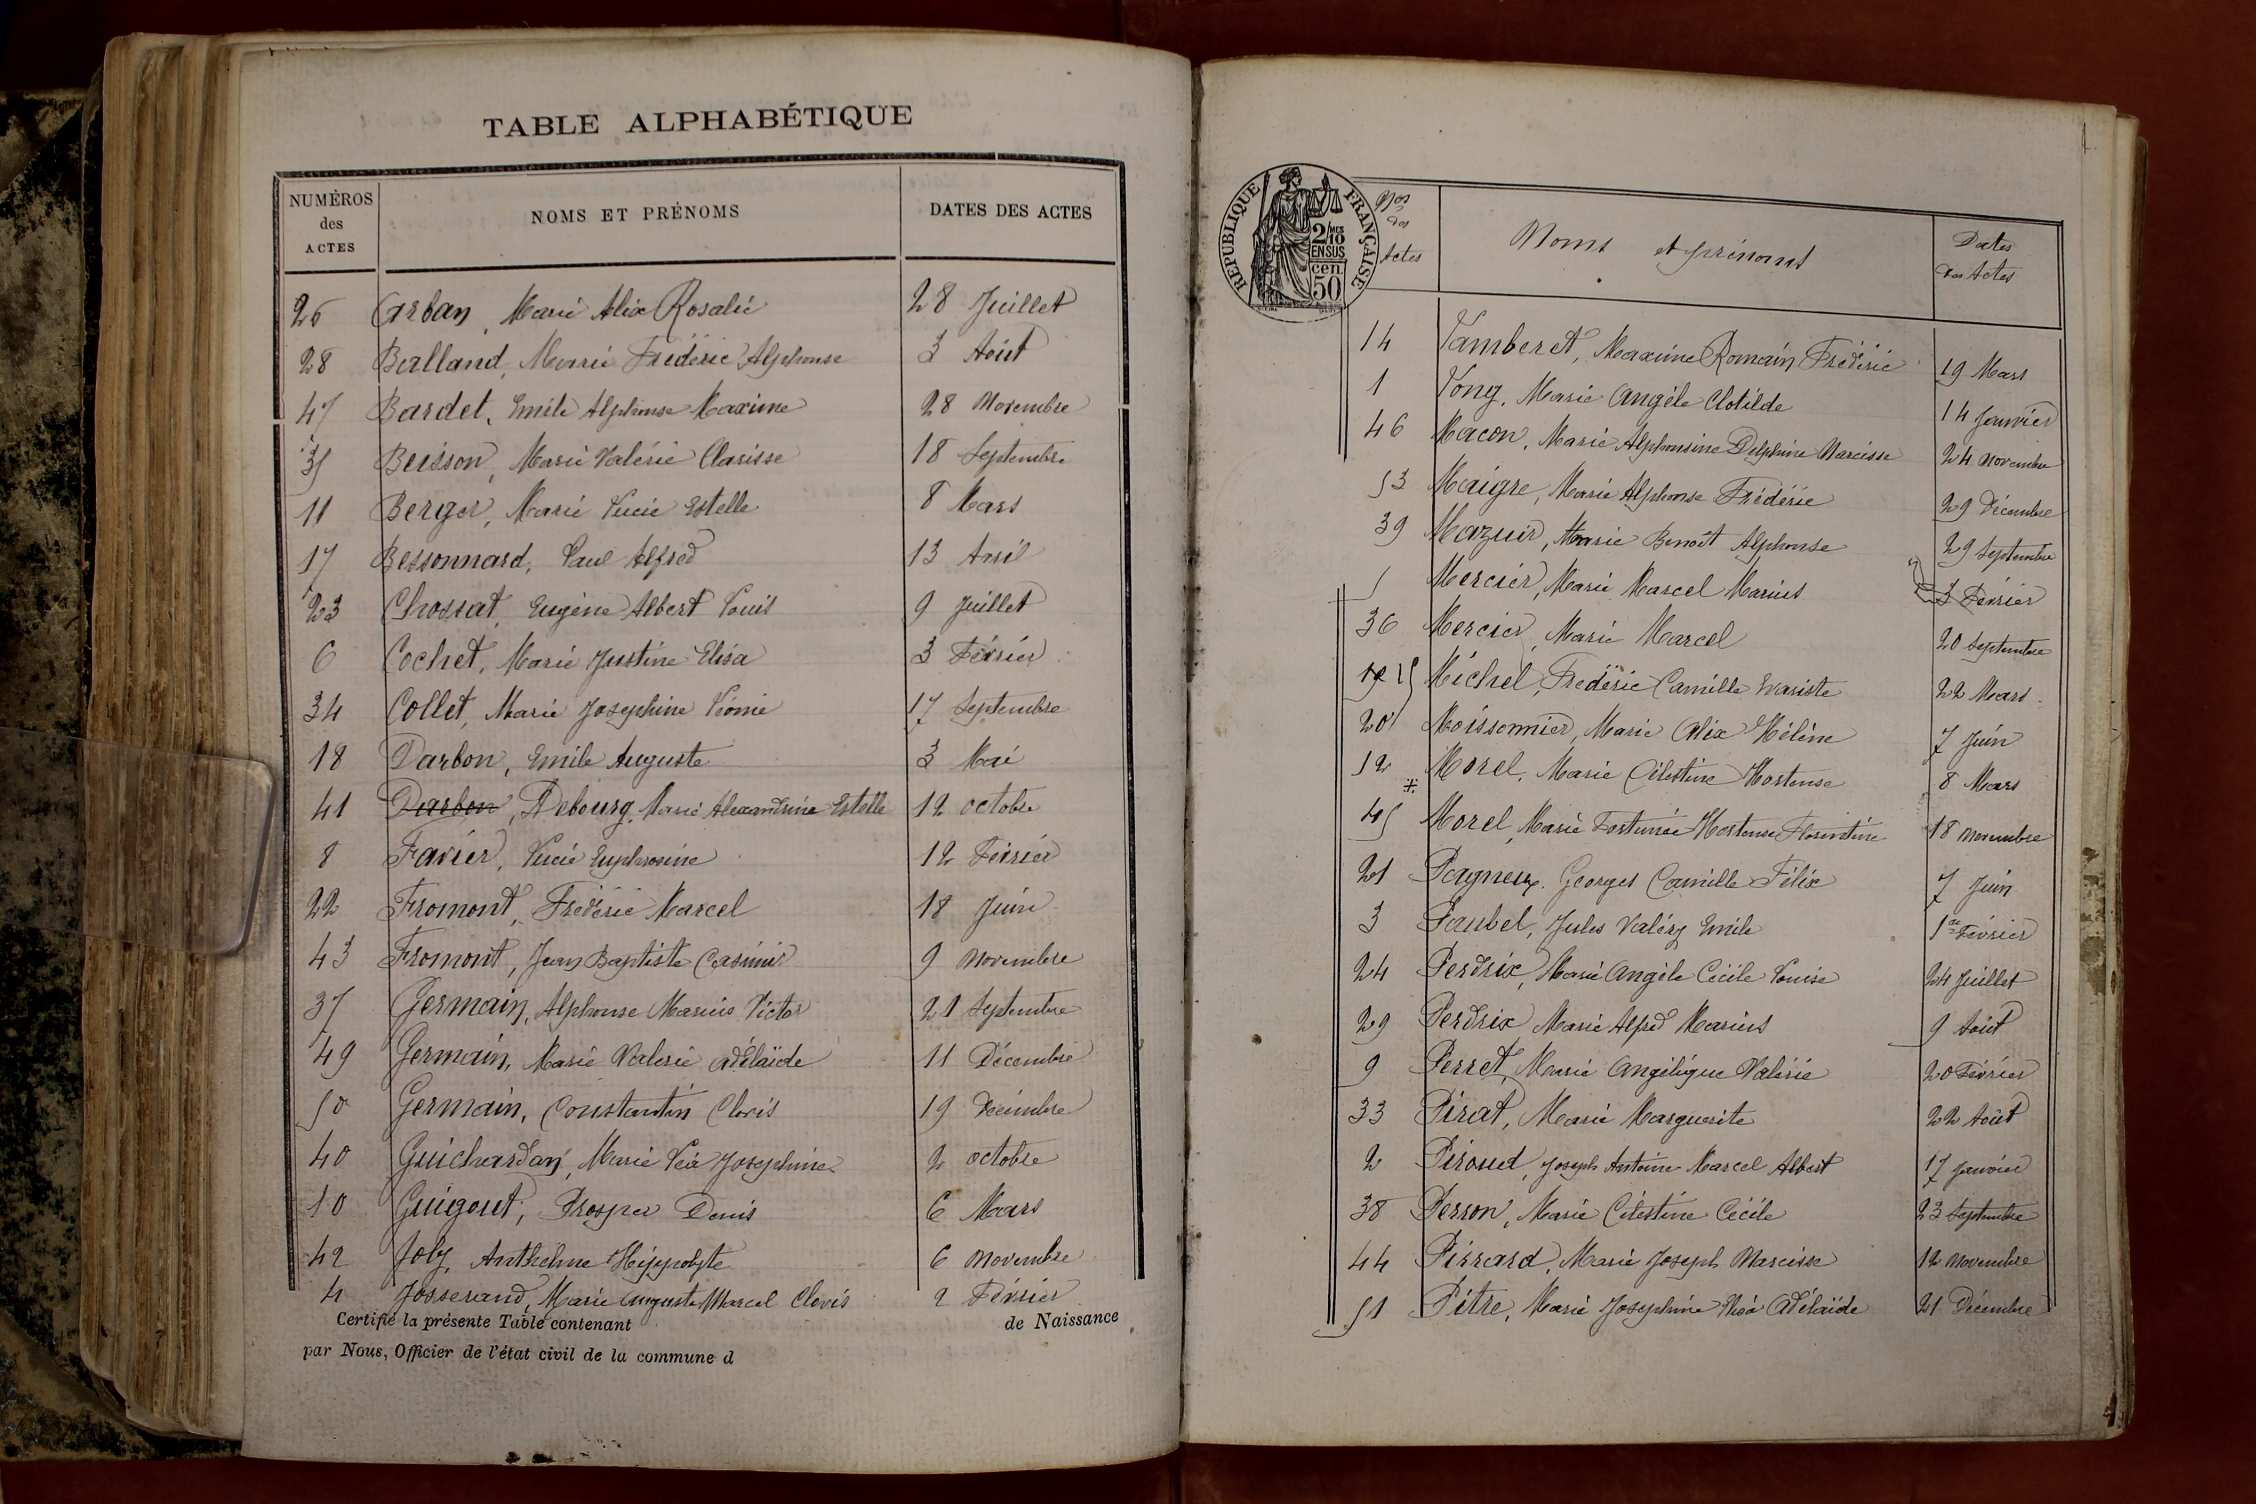 TABLE ALPHABÉTIQUE
NUMÉROS des ACTES NOMS ET PRÉNOMS DATES DES ACTES
26 Carban, Marie Alix Rosalie 28 Juillet
28 Balland, Marie Frédéric Alphonse 3 Août
47 Bardet, Emile Alphonse Maxime 28 Novembre
35 Beisson, Marie Valérie Clarisse 18 Septembre
11 Berger, Marie Lucie Estelle 8 Mars
17 Bessonnard, Paul Alfred 13 Avril
23 Chossat, Eugène Albert Louis 9 Juillet
6 Cochet, Marie Justine Elisa 3 Février
34 Collet, Marie Joséphine Léonie 17 Septembre
18 Darbon, Emile Auguste 3 Mai
41 Darbon, Debourg, Marie Alexandrine Estelle 12 octobre
8 Favier, Lucie Euphrosine 12 Février
22 Fromont, Frédéric Marcel 18 Juin
43 Fromont, Jean Baptiste Casimir 9 Novembre
37 Germain, Alphonse Marius Victor 21 Septembre
49 Germain, Marie Valerie Adélaïde 11 Décembre
50 Germain, Constantin Clovis 19 Décembre
40 Guichardan, Marie Léa Joséphine 2 octobre
10 Guigout, Prosper Denis 6 Mars
42 Joly, Anthelme Hippolyte 6 Novembre
4 Josserand, Marie Auguste Marcel Clovis 2 Février
Certifié la présente Table contenant de Naissance
par Nous, Officier de l'état civil de la commune d
RÉPUBLIQUE FRANÇAISE
2/10 MES
EN SUS
50 cen.
Nos des Actes Noms et prénoms Dates des Actes
14 Jamberet, Maxime Romain Frédéric 19 Mars
1 Jong, Marie Angèle Clotilde 14 Janvier
46 Macon, Marie Alphonsine Delphine Narcisse 24 Novembre
53 Maigre, Marie Alphonse Frédéric 29 Décembre
39 Mazuir, Marie Benoît Alphonse 29 Septembre
5 Mercier, Marie Marcel Marius 3 Février
36 Mercier, Marie Marcel 20 Septembre
15 Michel, Frédéric Camille Evariste 22 Mars
20 Moissonnier, Marie Alix Hélène 7 Juin
12 Morel, Marie Célestine Hortense 8 Mars
* 45 Morel, Marie Fortunée Hortense Florentine 18 Novembre
21 Pagneux, Georges Camille Félix 7 Juin
3 Paubel, Jules Valéry Emile 1er Février
24 Perdrix, Marie Angèle Cécile Louise 24 Juillet
29 Perdrix Marie Alfred Marius 9 Août
9 Perret, Marie Angélique Valérie 20 Février
33 Pirat, Marie Marguerite 22 Août
2 Piroud, Joseph Antoine Marcel Albert 17 Janvier
38 Perron, Marie Célestine Cécile 23 Septembre
44 Pirrard, Marie Joseph Narcisse 12 Novembre
51 Pitre, Marie Joséphine Elisa Adélaïde 21 Décembre